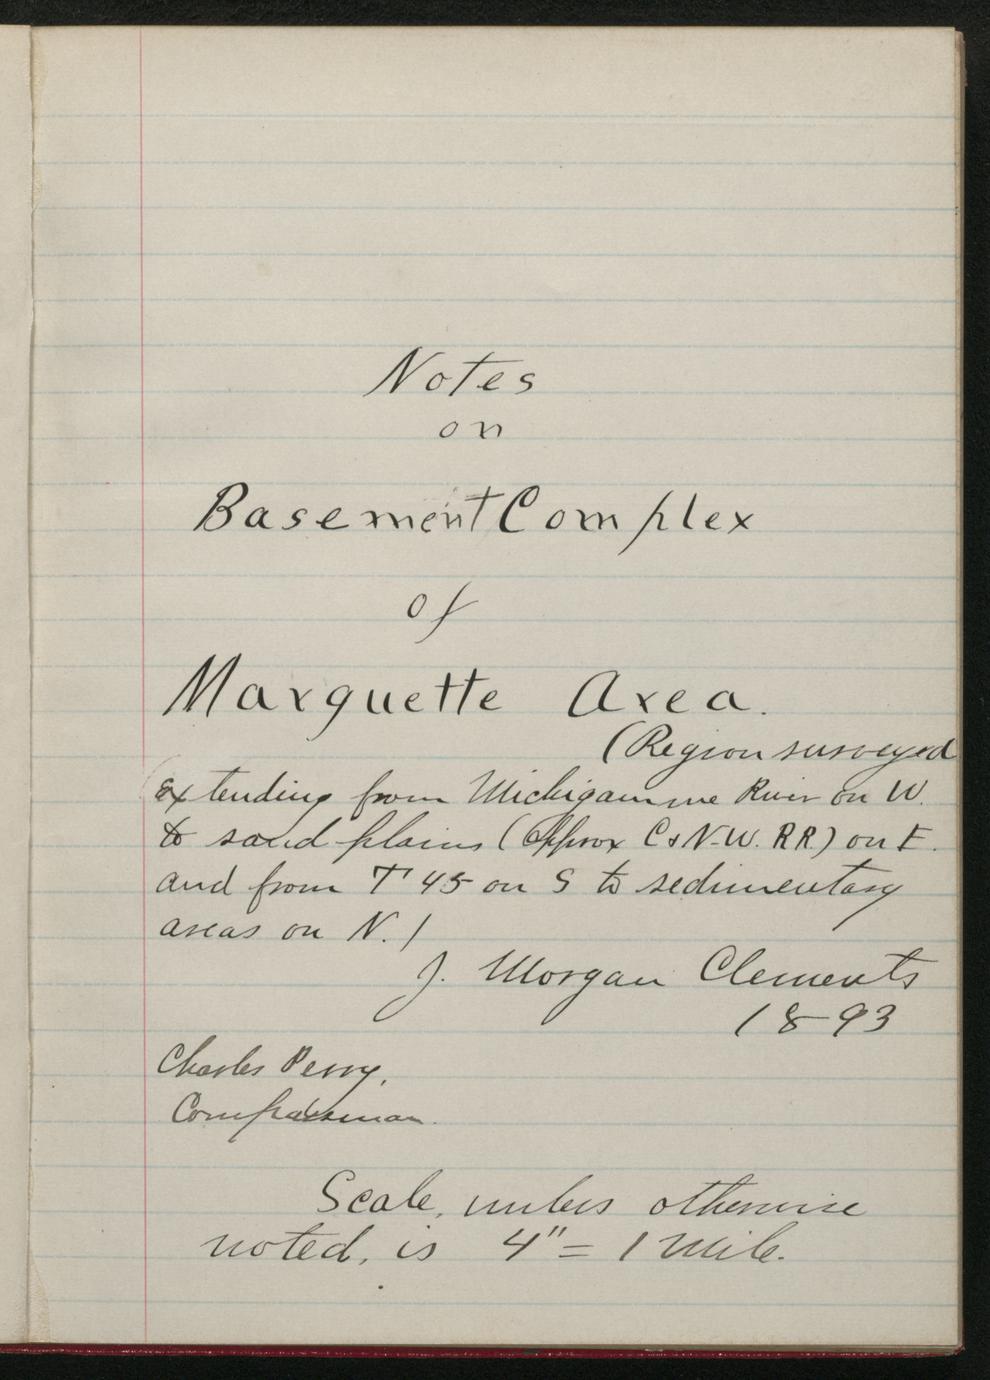 Notes
on
Basement Complex
of
Marquette Area.
(Region surveyed
extending from Michigamme River on W.
to sand plains (Approx C & N-W. RR.) on E.
and from T 45 on S to sedimentary
areas on N.)
J. Morgan Clements
1893
Charles Perry,
Compassman.
Scale, unless otherwise
noted, is 4" = 1 Mile.